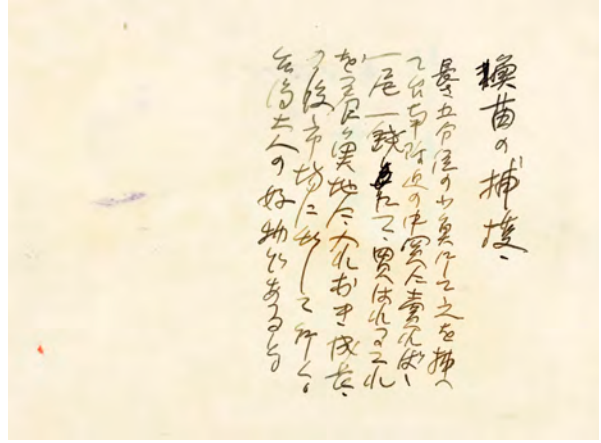 魚苗の捕獲、
長さ五分位の小魚にて之を捕へ
て台南附近の仲買人に賣れば、
一尾一銭にて、買はれるこれ
を買魚地に入れおき成長、
の後市場に出して行く。
台湾土人の好物であると